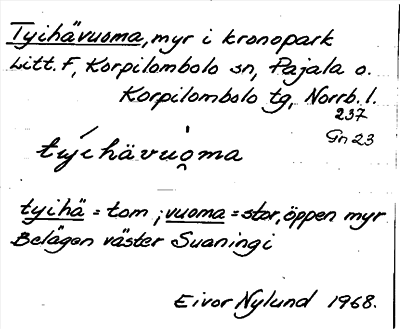 Tyihävuoma, myr i kronopark
Litt. F, Korpilombolo sn, Pajala o.
Korpilombolo tg, Norrb. l.
237
Gn 23
týihävuo̮ma
tyihä = tom ; vuoma = stor, öppen myr
Belägen väster Suaningi
Eivor Nylund 1968.